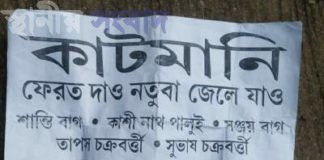 স্থানীয় সংবাদ
কাটমানি
ফেরত দাও নতুবা জেলে যাও
শান্তি বাগ • কাশী নাথ পালুই • সঞ্জয় বাগ
তাপস চক্রবর্ত্তী • সুভাষ চক্রবর্ত্তী